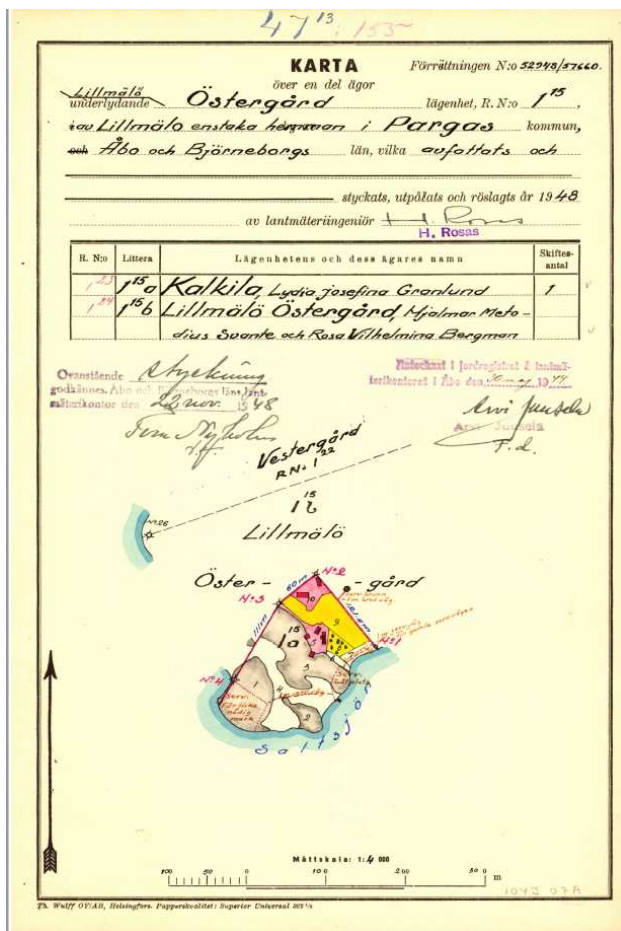 47¹³: 155
KARTA
Förrättningen N:o 52948/57660.
över en del ägor
Lillmälö
underlydande Östergård lägenhet, R. N:o 1¹⁵,
av Lillmälo enstaka hemman i Pargas kommun,
och Åbo och Björneborgs län, vilka avfattats och
styckats, utpålats och röslagts år 1948
av lantmäteriingeniör H. Rosas
H. Rosas
R. N:o Littera Lägenhetens och dess ägares namn Skiftes-antal
1²³ 1¹⁵a Kalkila, Lydia Josefina Granlund 1
1²⁴ 1¹⁵b Lillmälö Östergård, Hjalmar Meto-
dius Svante och Rosa Vilhelmina Bergman
Ovanstående styckning
godkännes. Åbo och Björneborgs läns lant-
mäterikontor den 22 nov. 1948
Antecknat i jordregistret å lantmä-
terikontoret i Åbo den 30 maj 1944
Arvi Juusela
Arvi Juusela
T.d.
Vestergård
RN:o 1²²
1¹⁵b
Lillmälö
N:o 26
Öster- -gård
60m
N:o 2
N:o 3
111m
N:o 1
1¹⁵a
9
5
3
N:o 4
1
4
2
Serv.
Saltsjön
Måttskala: 1:4 000
100 50 0 100 200 300 m
1043 07A
Th. Wulff OY/AB, Helsingfors. Papperskvalitet: Superior Universal